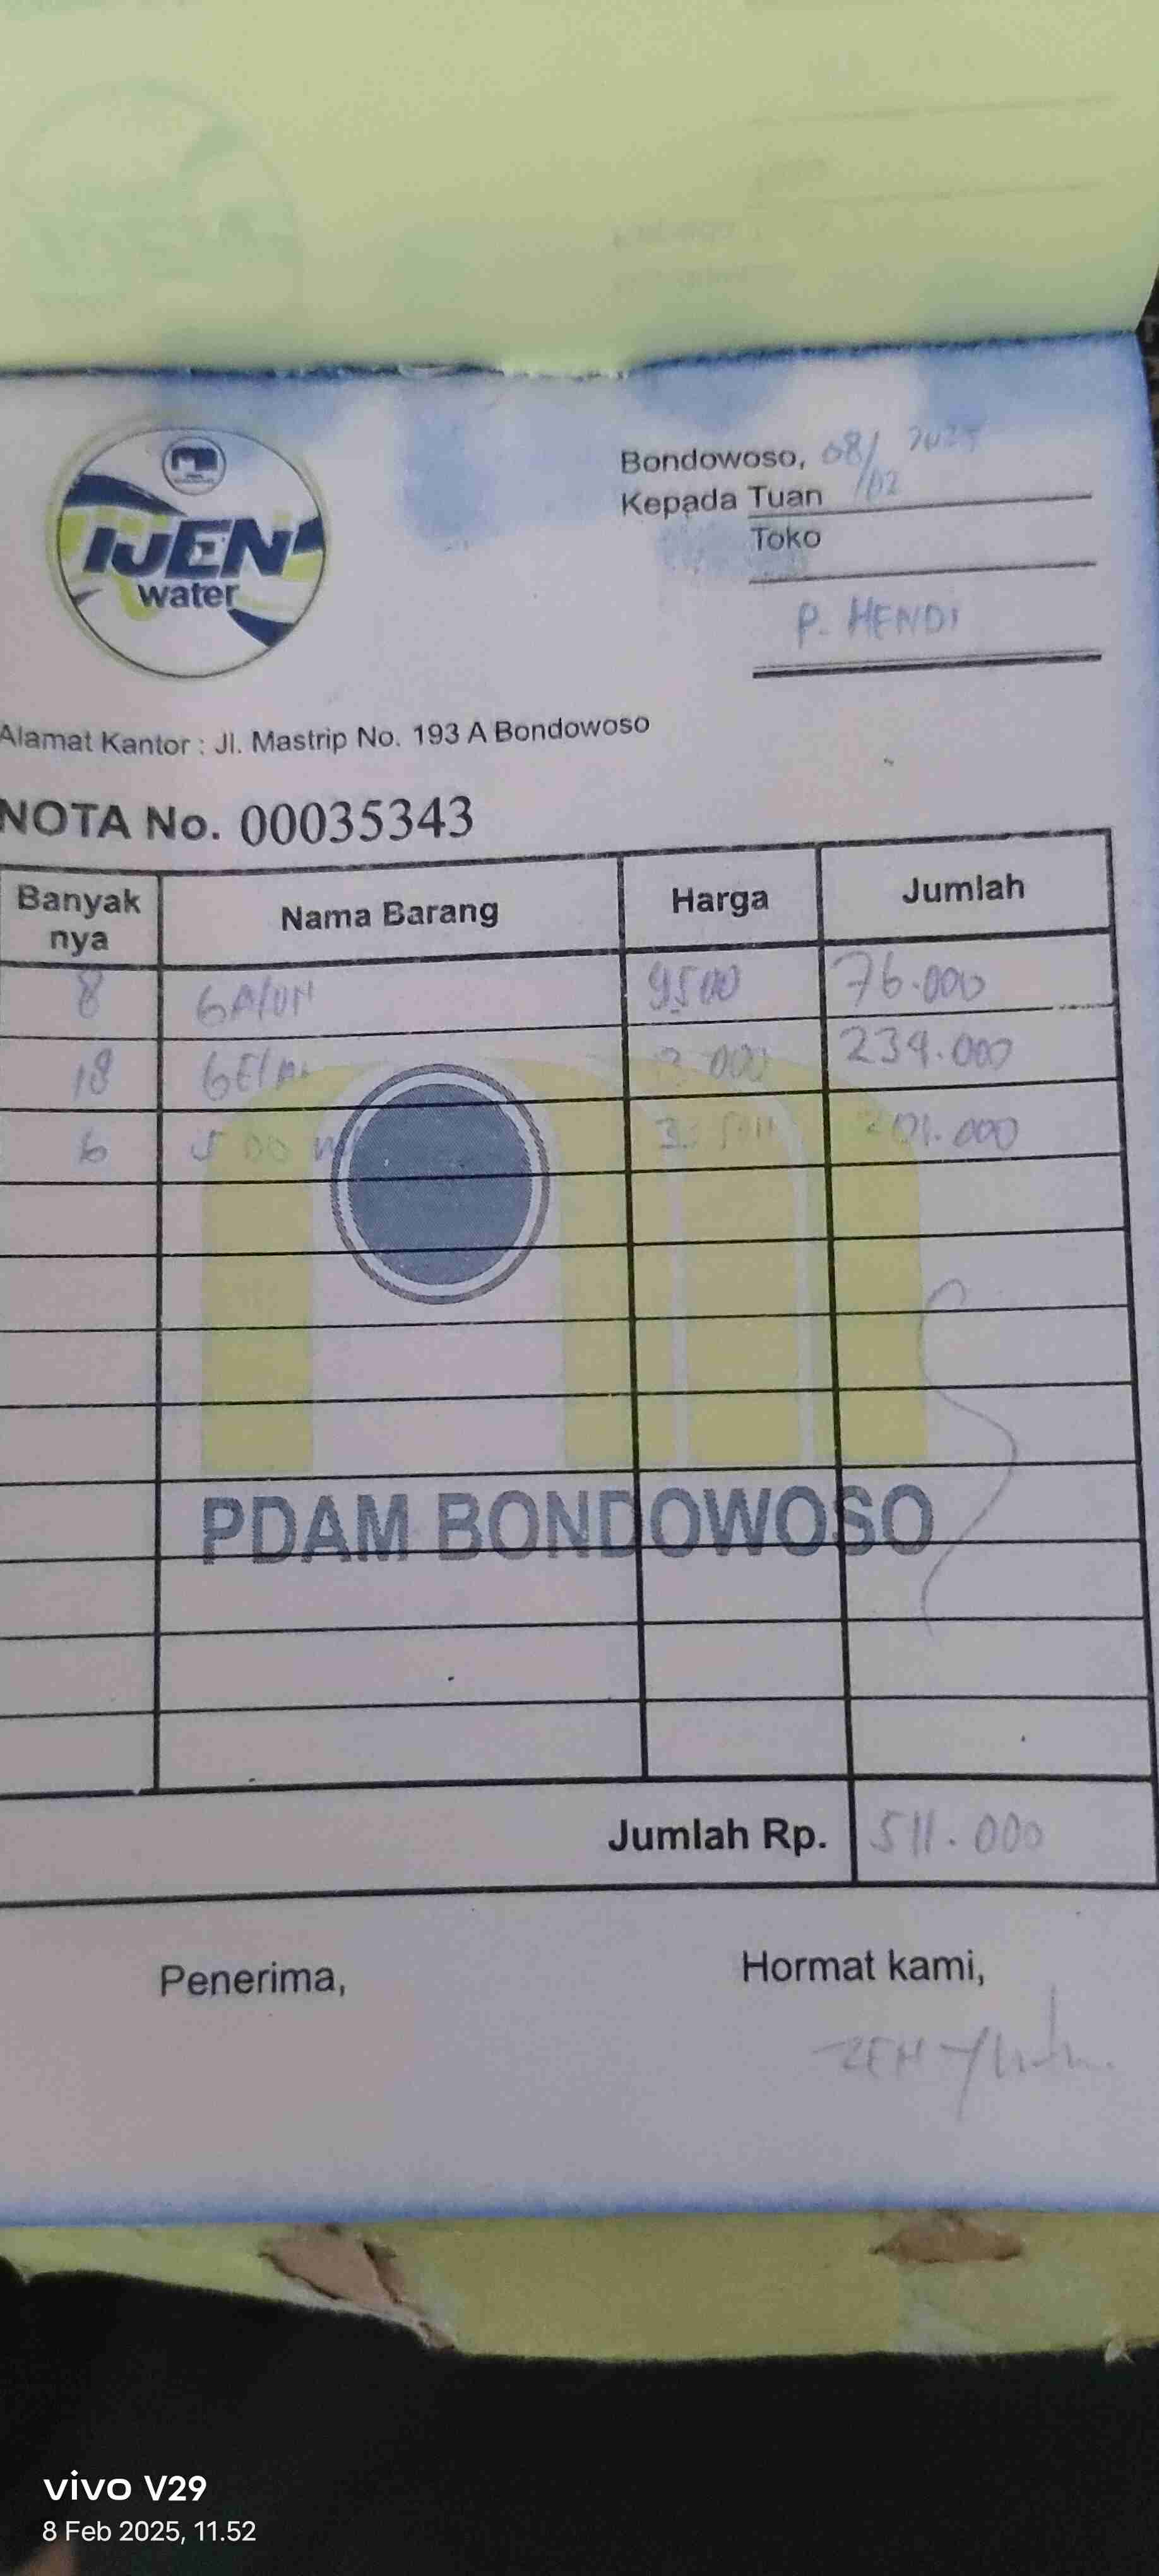 IJEN
water
Bondowoso, 08/02 2025
Kepada Tuan
Toko
P. HENDI
Alamat Kantor : Jl. Mastrip No. 193 A Bondowoso
NOTA No. 00035343
Banyak nya Nama Barang Harga Jumlah
8 GALON 9500 76.000
18 000 234.000
6 500 .000
PDAM BONDOWOSO
Jumlah Rp. 511.000
Penerima, Hormat kami,
vivo V29
8 Feb 2025, 11.52